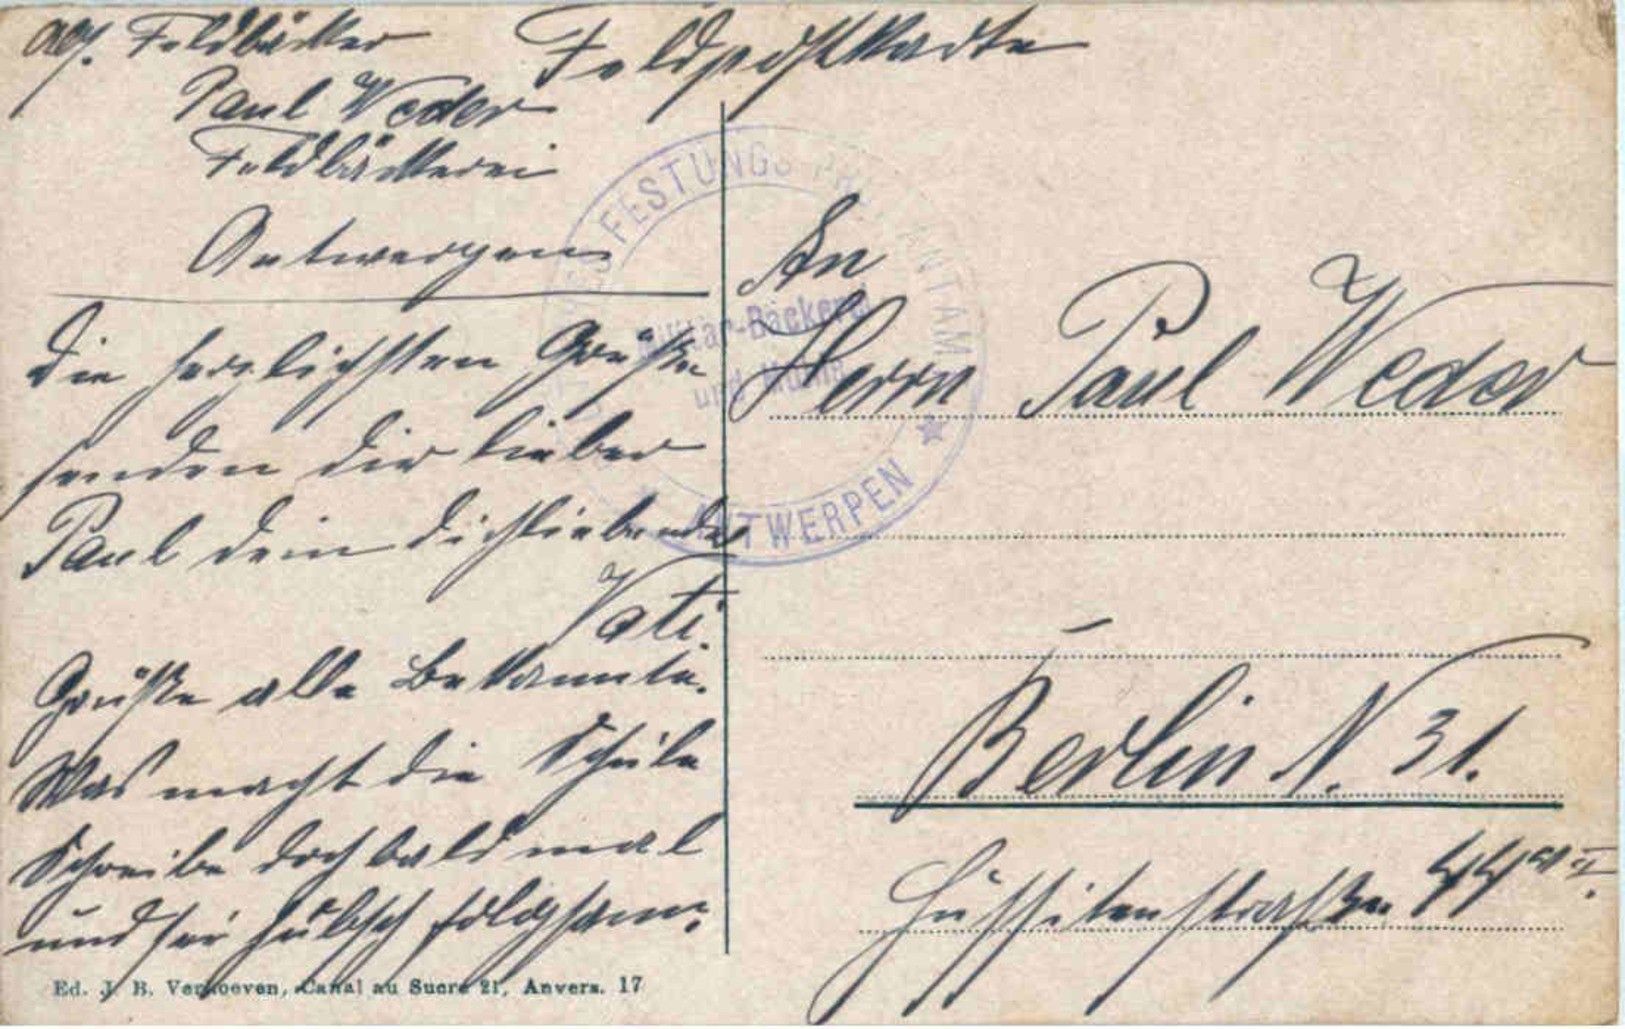 Abs. Feldbäcker
Paul Weder
Feldbäckerei
Antwerpen
Feldpostkarte
Die herzlichsten Grüße
senden dir lieber
Paul dein dichliebender
Vati.
Grüße alle Bekannte.
Was macht die Schule
Schreibe doch bald mal
und sei hübsch folgsam.
An
Herrn Paul Weder
Berlin N. 31.
Hussitenstraße 44
FESTUNGS
ANTWERPEN
Militär-Bäckerei
und
Ed. J. B. Verhoeven, Canal au Sucre 21, Anvers. 17